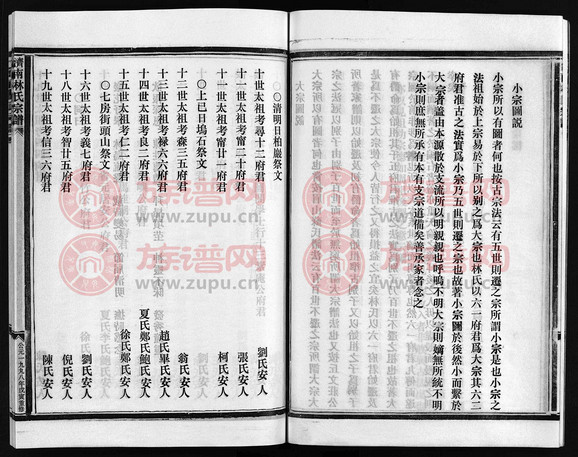 小宗圖説
小宗所以有圖者何也按古宗法云有五世則遷之宗所謂小宗是也小宗之
法祖始於上宗易於下所以別之爲大宗也林氏以六一府君爲大宗其六二
府君准古之法實爲小宗乃五世則遷之宗也故著小宗圖於後然小而繫於
大宗者蓋由本源散於支流所以明親親也呼嗚不明大宗則嫡無所統不明
小宗則庶無所承有本有支宗道備矣善承家者念之
濟南林氏宗譜
○清明日柏巖祭文
十世太祖考尋十二府君 劉氏安人
十一世太祖考甯二十府君 張氏安人
十一世太祖考甯廿一府君 柯氏安人
○上巳日塢石祭文
十二世太祖考森三五府君 翁氏安人
十三世太祖考祿六六府君 趙氏畢氏安人
十四世太祖考良二三府君 夏氏鄭氏鮑氏安人
十五世太祖考仁二二府君 徐氏鄭氏安人
○七房街頭山祭文
十六世太祖考義七府君 劉氏安人
十八世太祖考智廿五府君 倪氏安人
十九世太祖考信三六府君 陳氏安人
公元一九九八年戊寅重修
族谱网
www.zupu.cn
族谱网
www.zupu.cn